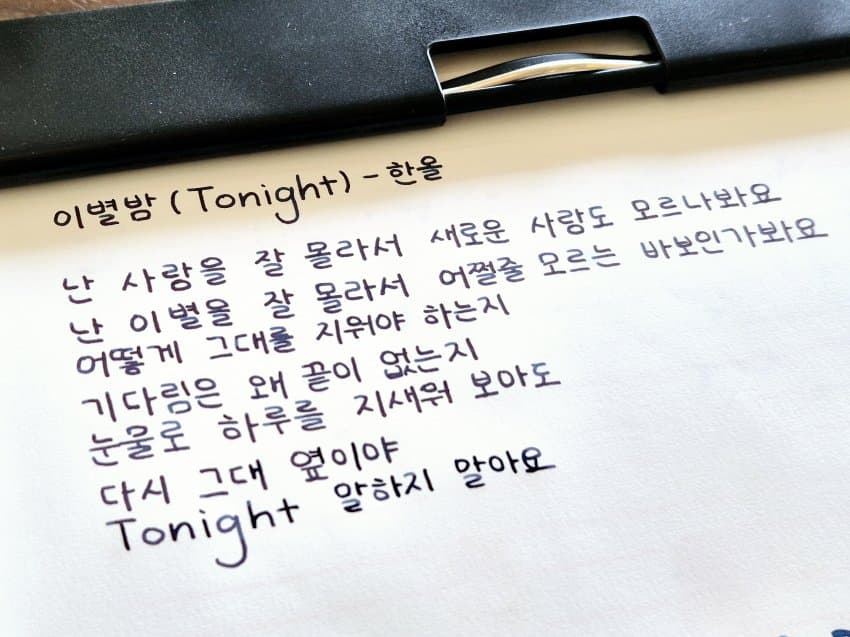 이별밤 (Tonight) - 한올
난 사랑을 잘 몰라서 새로운 사랑도 모르나봐요
난 이별을 잘 몰라서 어쩔줄 모르는 바보인가봐요
어떻게 그대를 지워야 하는지
기다림은 왜 끝이 없는지
눈물로 하루를 지새워 보아도
다시 그대 옆이야
Tonight 말하지 말아요